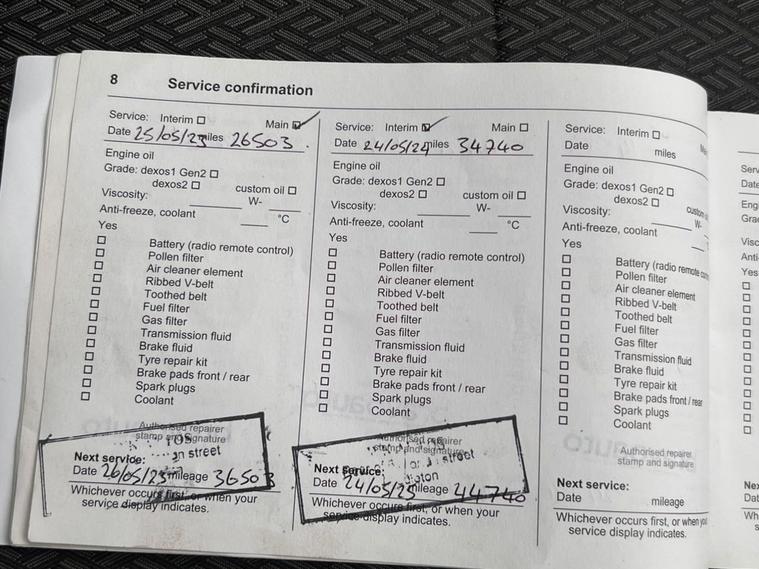 8 Service confirmation
Service: Interim ☐ Main ☑
Date 25/05/23 miles 26503
Engine oil
Grade: dexos1 Gen2 ☐
dexos2 ☐ custom oil ☐
Viscosity: W-
Anti-freeze, coolant °C
Yes
☐ Battery (radio remote control)
☐ Pollen filter
☐ Air cleaner element
☐ Ribbed V-belt
☐ Toothed belt
☐ Fuel filter
☐ Gas filter
☐ Transmission fluid
☐ Brake fluid
☐ Tyre repair kit
☐ Brake pads front / rear
☐ Spark plugs
☐ Coolant
Authorised repairer
stamp and signature
street
Next service:
Date 26/05/25 mileage 36503
Whichever occurs first, or when your
service display indicates.
Service: Interim ☑ Main ☐
Date 24/05/24 miles 34740
Engine oil
Grade: dexos1 Gen2 ☐
dexos2 ☐ custom oil ☐
Viscosity: W-
Anti-freeze, coolant °C
Yes
☐ Battery (radio remote control)
☐ Pollen filter
☐ Air cleaner element
☐ Ribbed V-belt
☐ Toothed belt
☐ Fuel filter
☐ Gas filter
☐ Transmission fluid
☐ Brake fluid
☐ Tyre repair kit
☐ Brake pads front / rear
☐ Spark plugs
☐ Coolant
Authorised repairer
stamp and signature
street
Next service:
Date 24/05/25 mileage 44740
Whichever occurs first, or when your
service display indicates.
Service: Interim ☐
Date miles
Engine oil
Grade: dexos1 Gen2 ☐
dexos2 ☐ custom
Viscosity: W-
Anti-freeze, coolant
Yes
☐ Battery (radio remote
☐ Pollen filter
☐ Air cleaner element
☐ Ribbed V-belt
☐ Toothed belt
☐ Fuel filter
☐ Gas filter
☐ Transmission fluid
☐ Brake fluid
☐ Tyre repair kit
☐ Brake pads front / rear
☐ Spark plugs
☐ Coolant
Authorised repairer
stamp and signature
Next service:
Date mileage
Whichever occurs first, or when your
service display indicates.